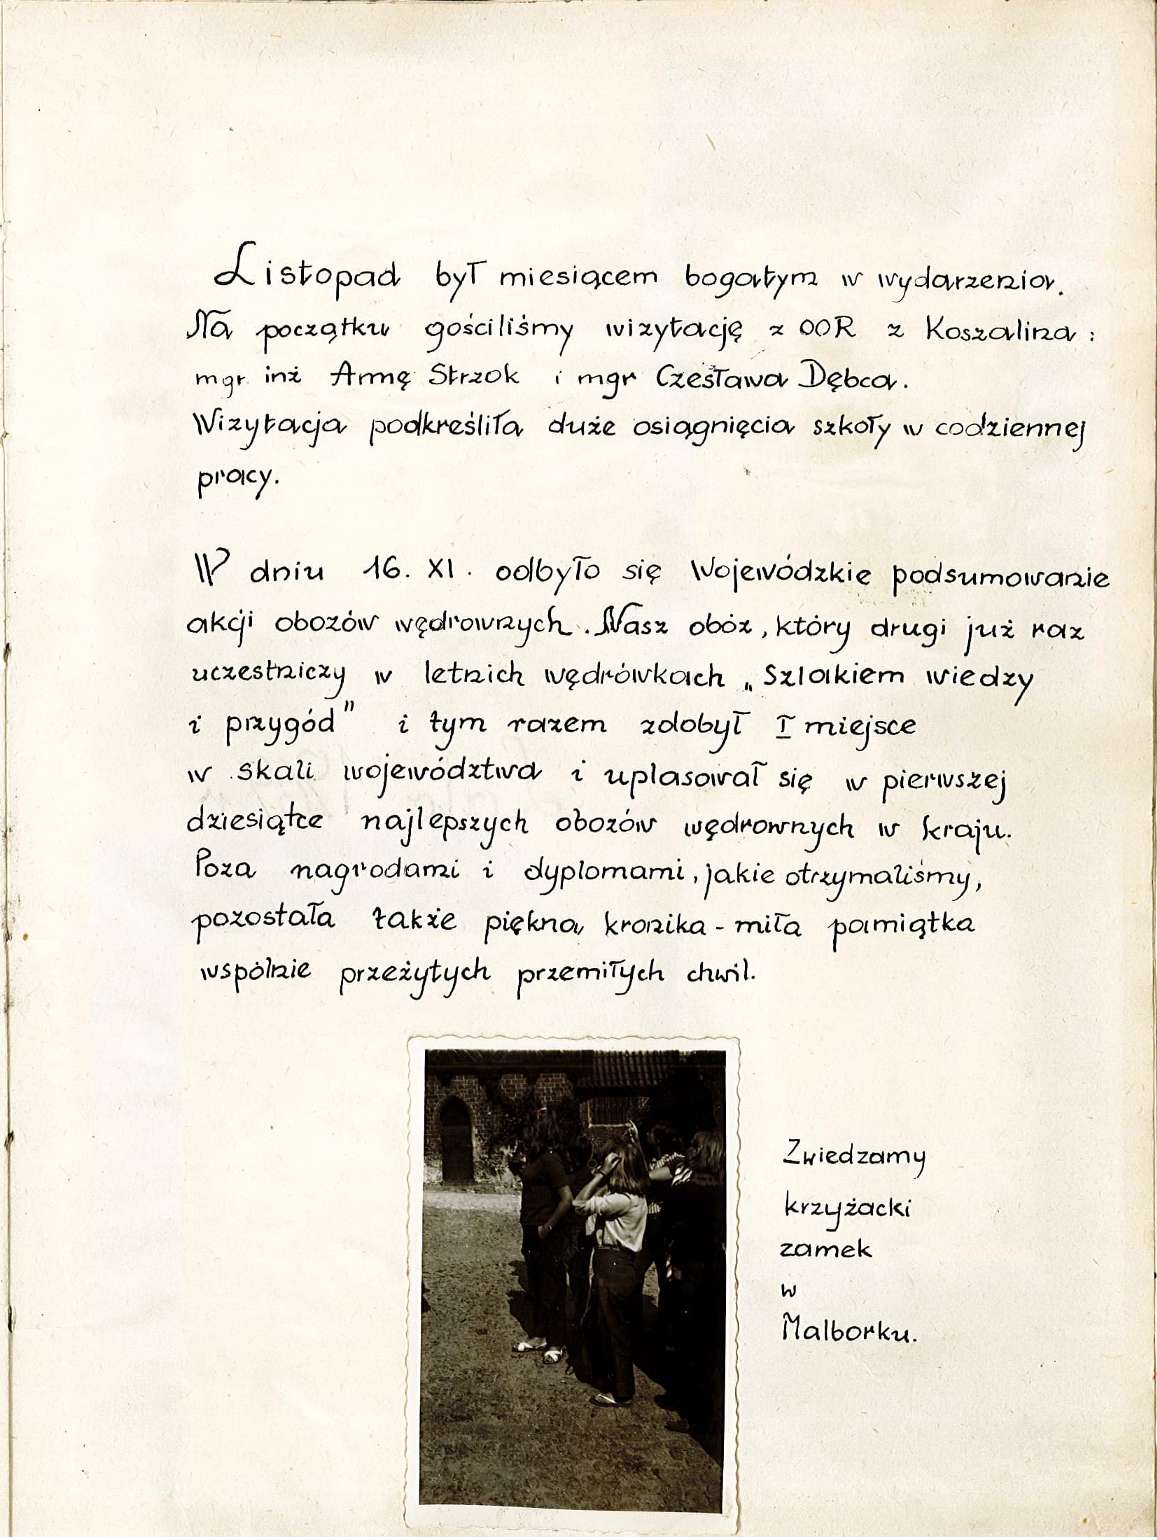 Listopad był miesiącem bogatym w wydarzenia.
Na początku gościliśmy wizytację z OOR z Koszalina :
mgr inż Annę Strzok i mgr Czesława Dębca.
Wizytacja podkreśliła duże osiągnięcia szkoły w codziennej
pracy.
W dniu 16. XI. odbyło się Wojewódzkie podsumowanie
akcji obozów wędrownych. Nasz obóz, który drugi już raz
uczestniczy w letnich wędrówkach „Szlakiem wiedzy
i przygód" i tym razem zdobył I miejsce
w skali województwa i uplasował się w pierwszej
dziesiątce najlepszych obozów wędrownych w kraju.
Poza nagrodami i dyplomami, jakie otrzymaliśmy,
pozostała także piękna kronika - miła pamiątka
wspólnie przeżytych przemiłych chwil.
Zwiedzamy
krzyżacki
zamek
w
Malborku.